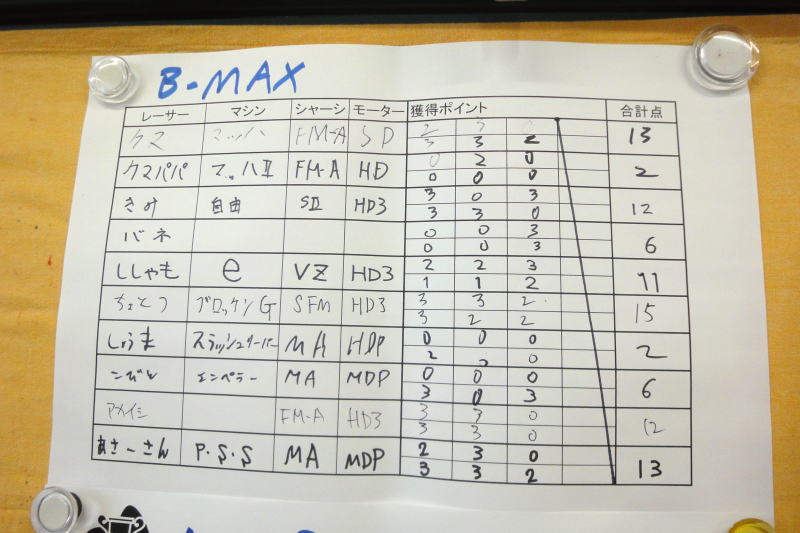 B-MAX
レーサー マシン シャーシ モーター 獲得ポイント 合計点
クマ マッハ FM-A SD 2 3 13
3 3 2
クマパパ マッハⅡ FM-A HD 0 2 0 2
0 0 0
きみ 自由 SⅡ HD3 3 0 3 12
3 3 0
バネ 0 0 3 6
0 0 3
ししゃも e VZ HD3 2 2 3 11
1 1 2
ちょとつ ブロッケンG SFM HD3 3 3 2 15
3 2 2
しょうま MA HDP 0 0 0 2
2 0 0
こびと エンペラー MA MDP 0 0 0 6
3 0 3
アメイシ FM-A HD3 3 3 0 12
3 3 0
あさーさん P.S.S MA MDP 2 3 0 13
3 3 2